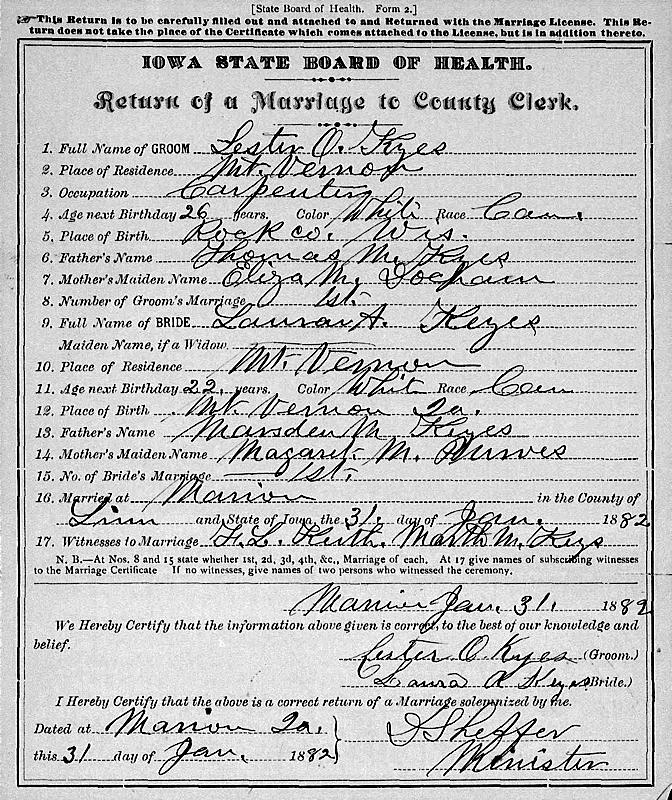 [State Board of Health. Form 2.]
☞This Return is to be carefully filled out and attached to and Returned with the Marriage License. This Re-
turn does not take the place of the Certificate which comes attached to the License, but is in addition thereto.
IOWA STATE BOARD OF HEALTH.
Return of a Marriage to County Clerk.
1. Full Name of GROOM Lester O. Kyes
2. Place of Residence Mt. Vernon
3. Occupation Carpenter
4. Age next Birthday 26 years. Color White Race Cau.
5. Place of Birth Rock co. Wis.
6. Father's Name Thomas M. Kyes
7. Mother's Maiden Name Eliza M.
8. Number of Groom's Marriage 1st.
9. Full Name of BRIDE Laura A. Keyes
Maiden Name, if a Widow
10. Place of Residence Mt. Vernon
11. Age next Birthday 22. years. Color White Race Cau
12. Place of Birth Mt. Vernon Ia.
13. Father's Name Marsden M. Keyes
14. Mother's Maiden Name Magaret M.
15. No. of Bride's Marriage 1st.
16. Married at Marion in the County of
Linn and State of Iowa, the 31. day of Jan. 1882
17. Witnesses to Marriage F. L. Keith. Martha M. Keys
N. B.—At Nos. 8 and 15 state whether 1st, 2d, 3d, 4th, &c., Marriage of each. At 17 give names of subscribing witnesses
to the Marriage Certificate If no witnesses, give names of two persons who witnessed the ceremony.
Marion Jan. 31. 1882
We Hereby Certify that the information above given is correct, to the best of our knowledge and
belief.
Lester O Kyes (Groom.)
Laura A Keyes (Bride.)
I Hereby Certify that the above is a correct return of a Marriage solemnized by me.
Dated at Marion Ia.
this 31 day of Jan. 1882
Sheffer
Minister